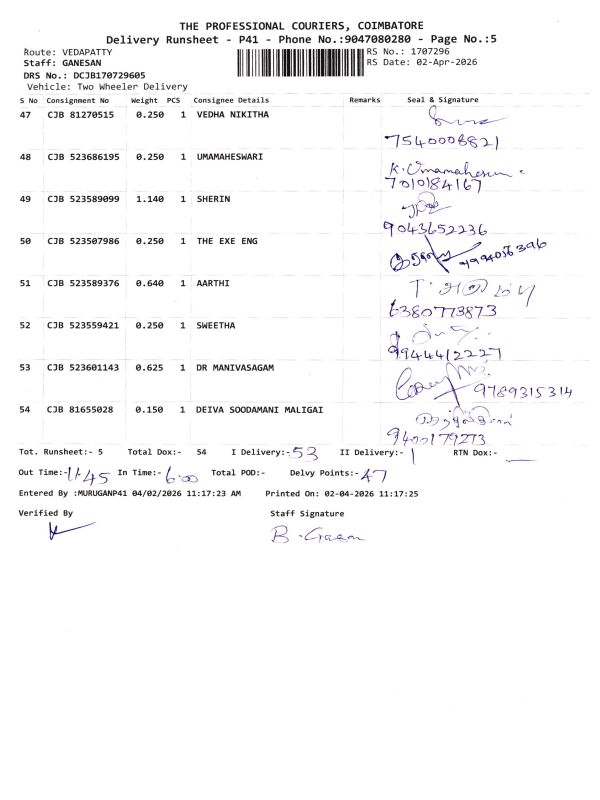 THE PROFESSIONAL COURIERS, COIMBATORE
Delivery Runsheet - P41 - Phone No.:9047080280 - Page No.:5
Route: VEDAPATTY
RS No.: 1707296
Staff: GANESAN
RS Date: 02-Apr-2026
DRS No.: DCJB170729605
Vehicle: Two Wheeler Delivery
S No Consignment No Weight PCS Consignee Details Remarks Seal & Signature
47 CJB 81270515 0.250 1 VEDHA NIKITHA
7540008821
48 CJB 523686195 0.250 1 UMAMAHESWARI
K. Umamaheswari
7010184167
49 CJB 523589099 1.140 1 SHERIN
9043652236
50 CJB 523507986 0.250 1 THE EXE ENG
9994056396
51 CJB 523589376 0.640 1 AARTHI
6380773873
52 CJB 523559421 0.250 1 SWEETHA
9944412227
53 CJB 523601143 0.625 1 DR MANIVASAGAM
9789315314
54 CJB 81655028 0.150 1 DEIVA SOODAMANI MALIGAI
9400179273
Tot. Runsheet:- 5 Total Dox:- 54 I Delivery:- 53 II Delivery:- 1 RTN Dox:-
Out Time:- 11.45 In Time:- 6.00 Total POD:- Delvy Points:- 47
Entered By :MURUGANP41 04/02/2026 11:17:23 AM Printed On: 02-04-2026 11:17:25
Verified By Staff Signature